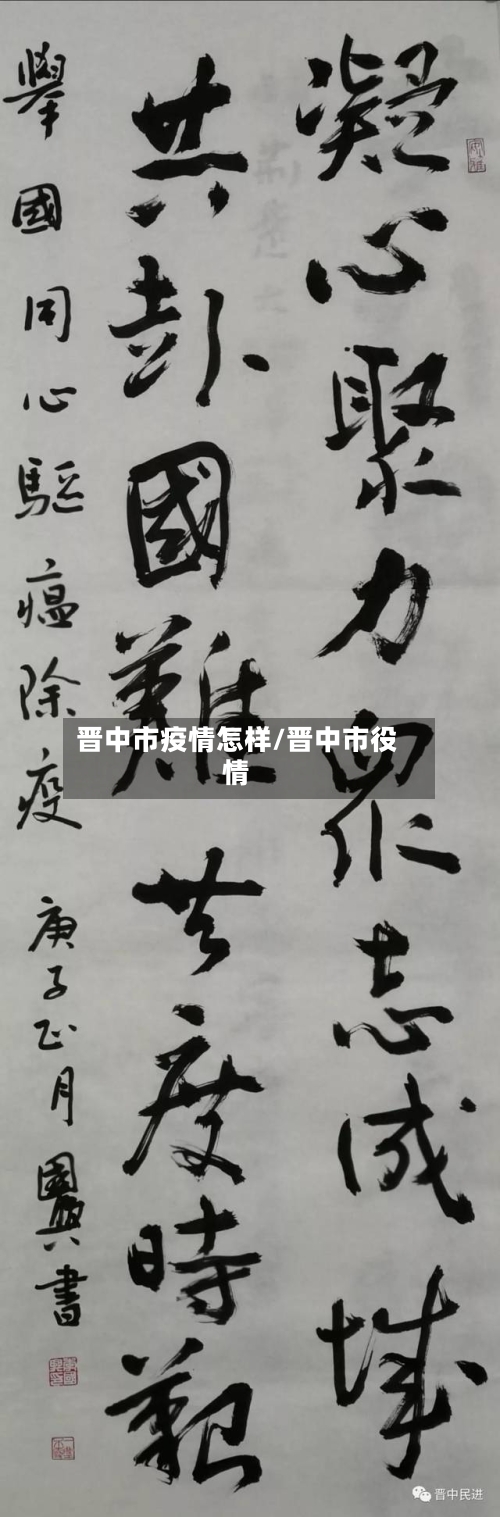 凝心聚力眾志成城
共赴國難共度時艱
舉國同心驅瘟除疫
庚子正月國興書
晋中市疫情怎样/晋中市役
情
晋中民进